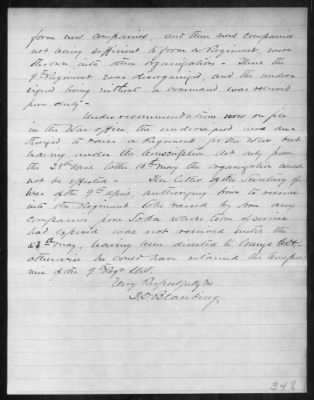 form new companies, and these new companies
not being sufficient to form a Regiment, were
thrown into other organizations - Thus the
9th Regiment was disorganized, and the under-
signed being without a command was relieved
from duty -
Under recommendations now on file
in the War office, the undersigned was au-
thorized to raise a Regiment for the War but
having under the Conscription Act only from
the to the 16th May the organization could
not be effected - The letter of the Secretary of
War of the 9th April, authorizing him to receive
into the Regiment to be raised by him any
companies from Soda whose term of service
had expired was not received until the
May, having been directed to Orange CH.
otherwise he could have retained the compa-
nies of the 9th Regt
Very Respectfully
J D Blanding
348